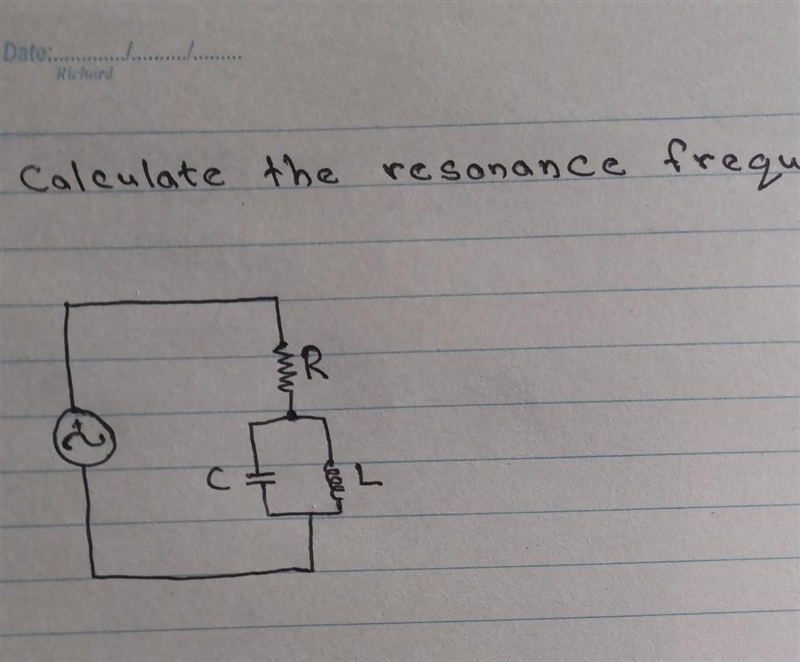 Date:............/........../........
Richard
Calculate the resonance frequ
R
C L